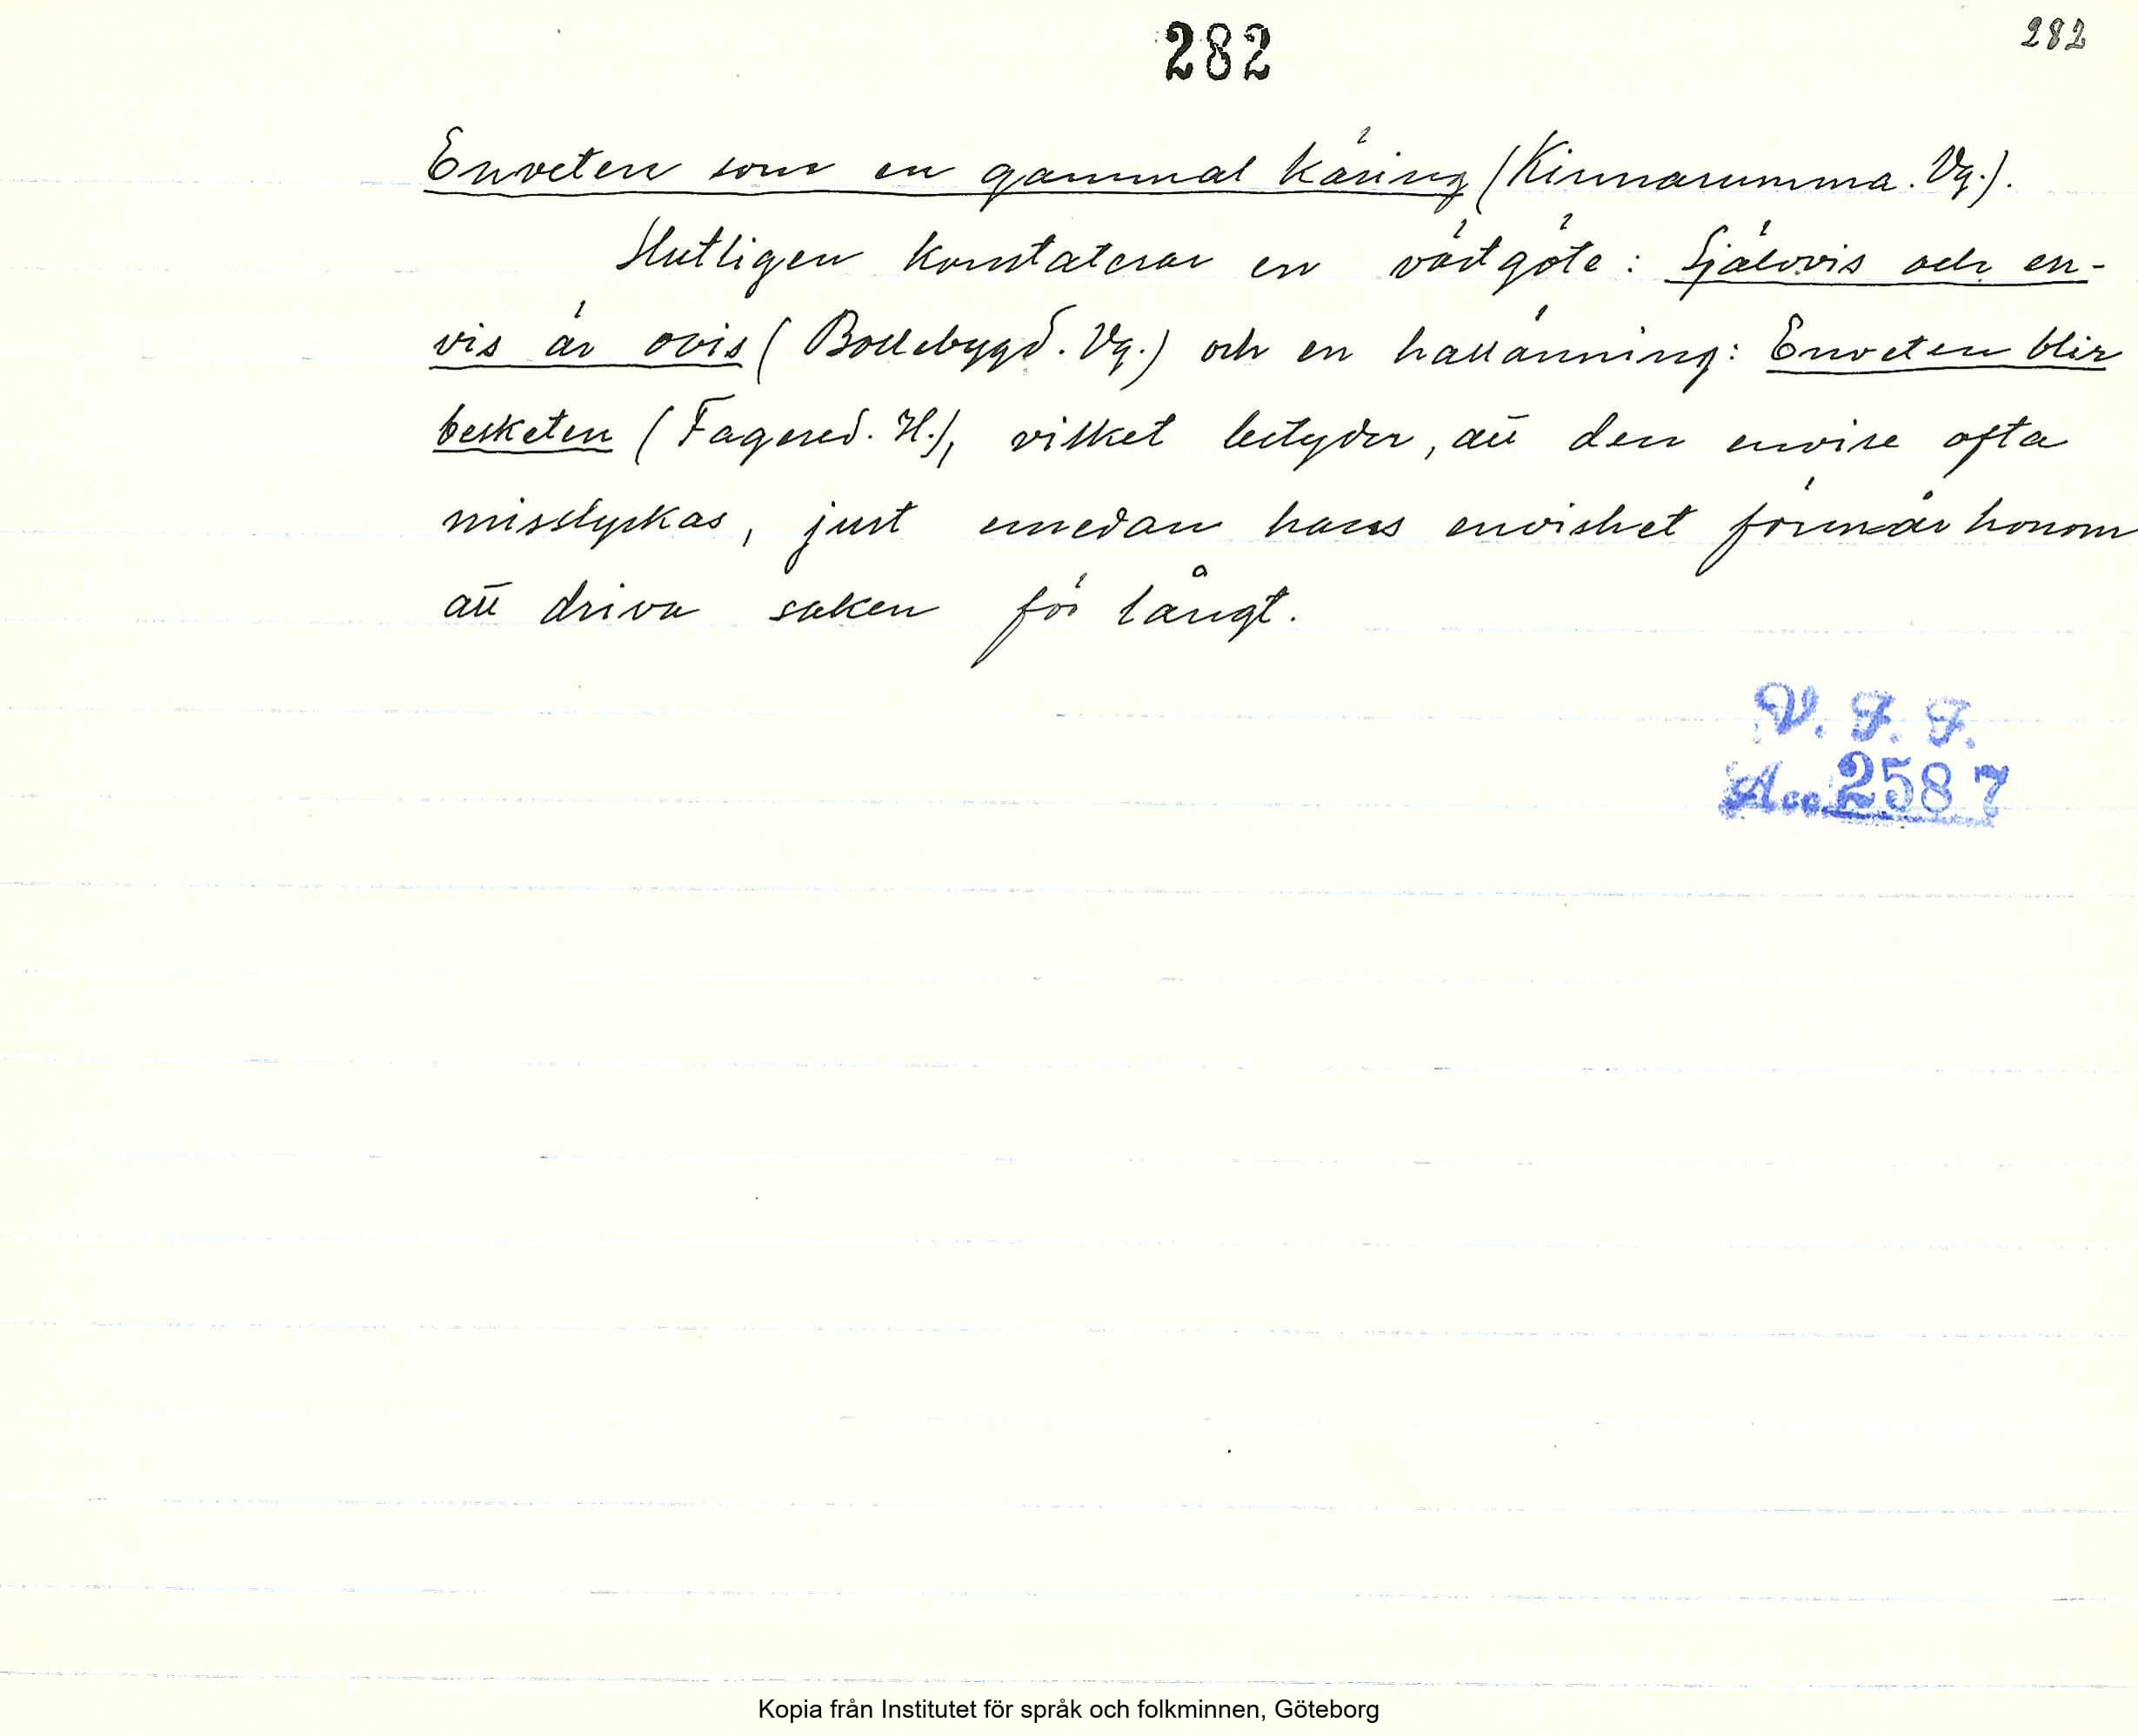 282
282
Enveten som en gammal käring (Kinnarumma. Vg.).
Slutligen konstaterar en västgöte: Självvis och en-
vis är ovis (Bollebygd. Vg.) och en hallänning: Enveten blir
besketen (Fagered. H.), vilket betyder, att den envise ofta
misslyckas, just emedan hans envishet förmår honom
att driva saken för långt.
V. F. F.
Acc. 2587
Kopia från Institutet för språk och folkminnen, Göteborg